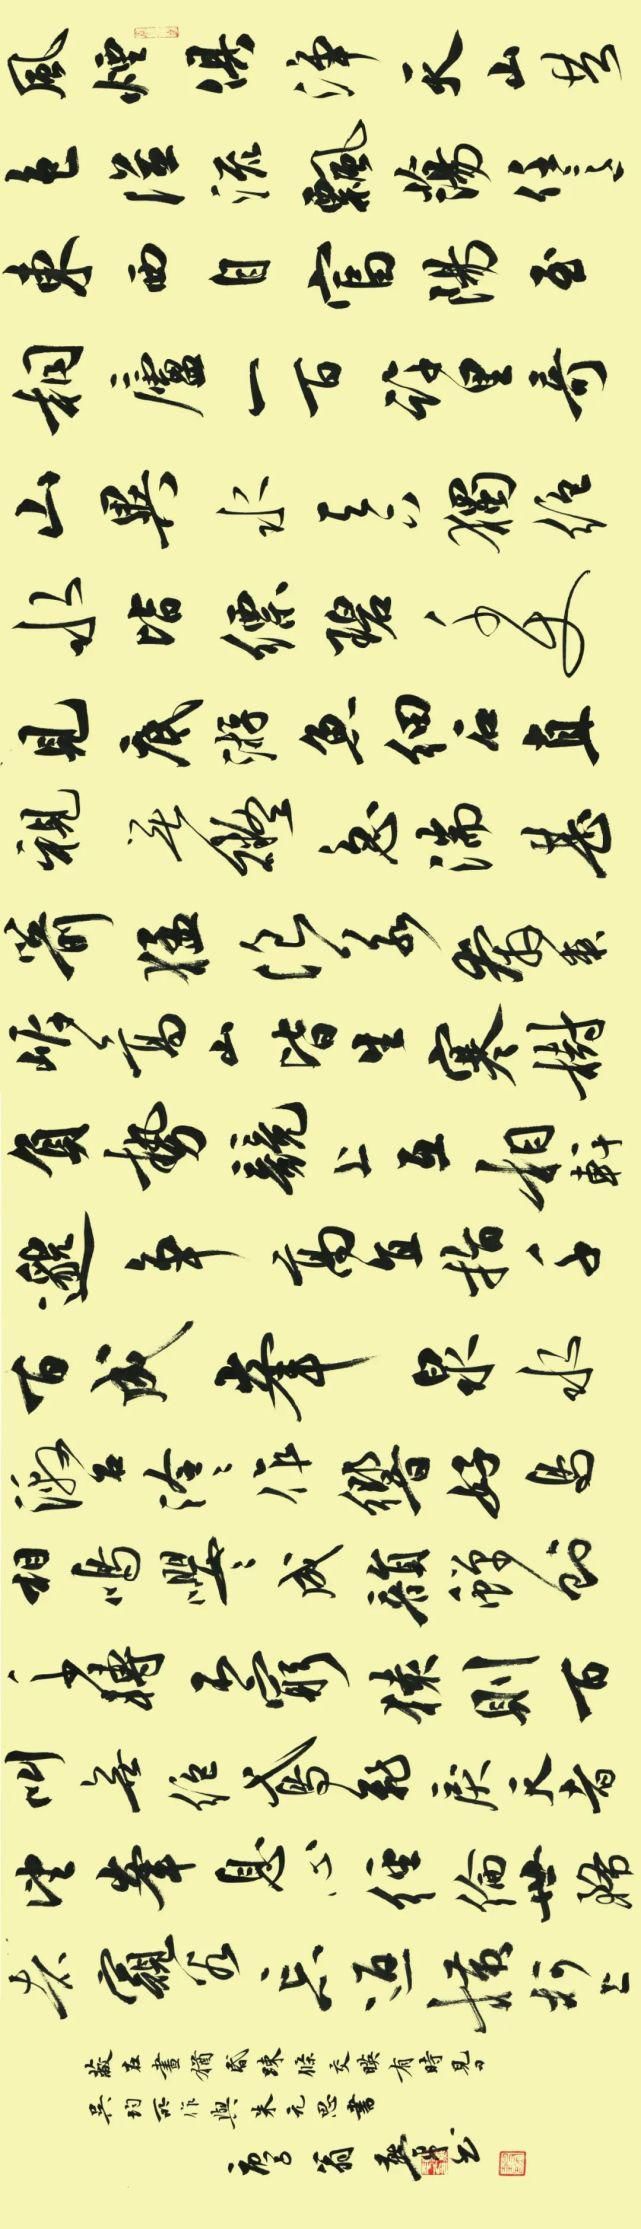 風煙俱淨天山共
色從流飄蕩任意
東西自富陽至
桐廬一百許里奇
山異水天下獨絕
水皆縹碧千丈
見底游魚細石直
視無礙急湍甚
箭猛浪若奔夾
岸高山皆生寒樹
負勢競上互相軒
邈爭高直指千
百成峯泉水
激石泠々作響好鳥
相鳴嚶々成韻蟬則
千轉不窮猿則百
叫無絕鳶飛戾天者
望峯息心經綸世務
者窺谷忘返橫柯上
蔽在晝猶昏疎條交映有時見日
吳均所作與朱元思書
翁 書